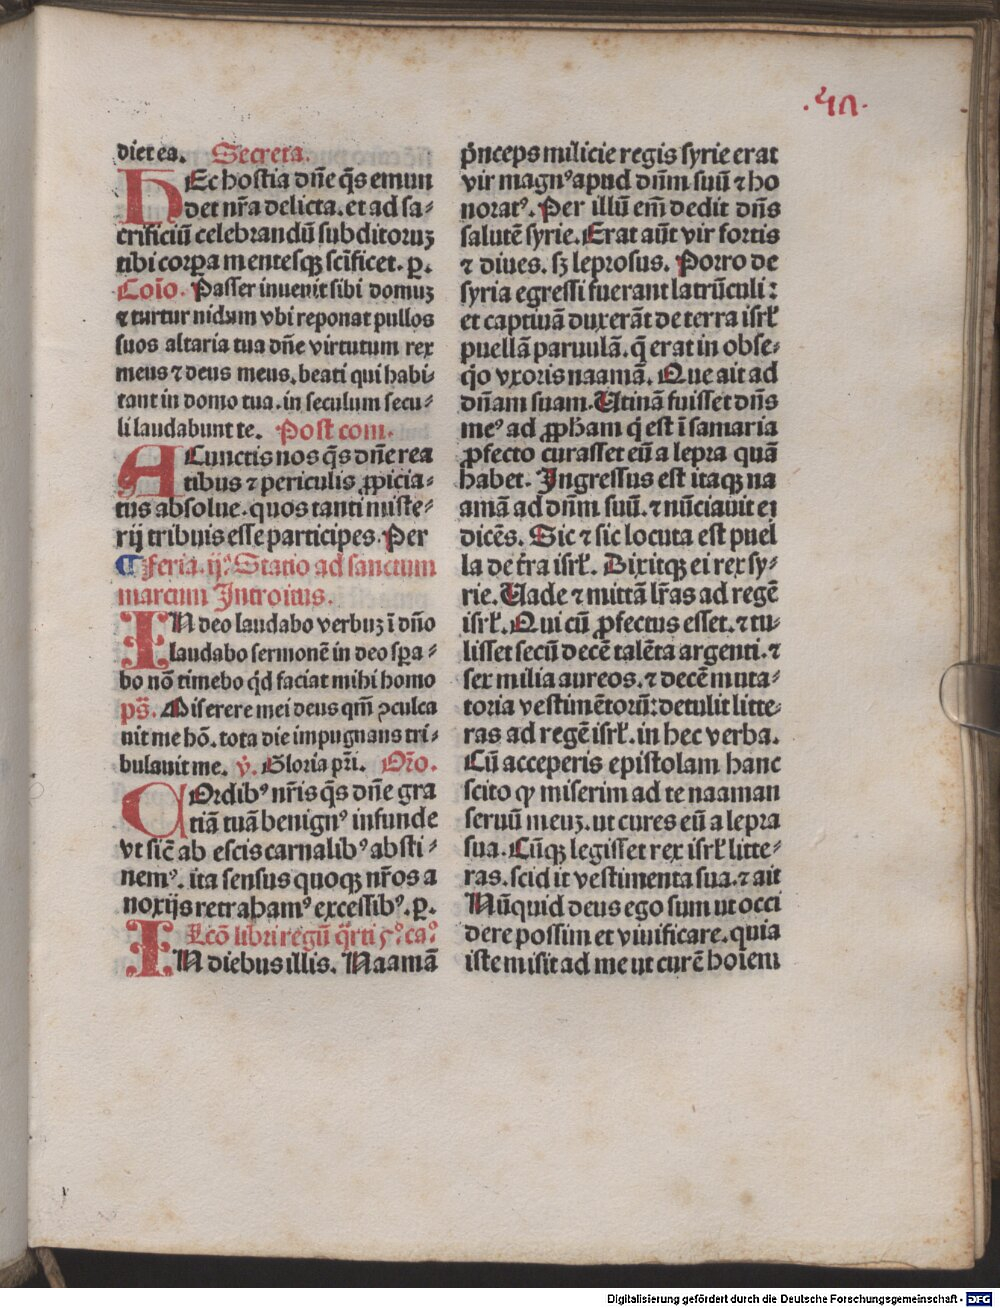 .51.
diet ea. Secreta.
HEc hostia dn̄e q̄s emun
det nr̄a delicta. et ad sa⸗
crificiū celebrandū subditoruꝫ
tibi corpa mentesqꝫ sc̄ificet. p.
Coīo. Passer inuenit sibi domuꝫ
⁊ turtur nidum vbi reponat pullos
suos altaria tua dn̄e virtutum rex
meus ⁊ deus meus. beati qui habi⸗
tant in domo tua. in seculum secu⸗
li laudabunt te. Post com.
A Cunctis nos q̄s dn̄e rea
tibus ⁊ periculis ꝓpicia⸗
tus absolue. quos tanti miste⸗
rij tribuis esse participes. Per
¶ Feria .ij.ª Statio ad sanctum
marcum Introitus.
IN deo laudabo verbuꝫ ī dn̄o
laudabo sermonē in deo spa⸗
bo nō timebo qd faciat mihi homo
ps̄. Miserere mei deus qm̄ ꝯculca
uit me hō. tota die impugnans tri⸗
bulauit me. v̄. Gloria pr̄i. Or̄o.
COrdibꝰ nr̄is q̄s dn̄e gra
tiā tuā benignꝰ infunde
vt sic̄ ab escis carnalibꝰ absti⸗
nemꝰ. ita sensus quoqꝫ nr̄os a
noxijs retrahamꝰ excessibꝰ. p.
Lcō libri regū q̄rti 5º. caº
IN diebus illis. Naamā
p̄nceps milicie regis syrie erat
vir magnꝰ apud dn̄m suū ⁊ ho
noratꝰ. Per illū em̄ dedit dn̄s
salutē syrie. Erat aūt vir fortis
⁊ diues. sꝫ leprosus. Porro de
syria egressi fuerant latrūculi:
et captiuā duxerāt de terra isrł
puellā paruulā. q̄ erat in obse⸗
q̄o vxoris naamā. Que ait ad
dn̄am suam. Utinā fuisset dn̄s
meꝰ ad ꝓpham q̄ est ī samaria
ꝓfecto curasset eū a lepra quā
habet. Ingressus est itaqꝫ na
amā ad dn̄m suū. ⁊ nūciauit ei
dicēs. Sic ⁊ sic locuta est puel
la de t̄ra isrł. Dixitqꝫ ei rex sy⸗
rie. Uade ⁊ mittā lr̄as ad regē
isrł. Qui cū ꝓfectus esset. ⁊ tu⸗
lisset secū decē talēta argenti. ⁊
sex milia aureos. ⁊ decē muta⸗
toria vestimētorū: detulit litte⸗
ras ad regē isrł. in hec verba.
Cū acceperis epistolam hanc
scito qꝙ miserim ad te naaman
seruū meuꝫ. ut cures eū a lepra
sua. Cūqꝫ legisset rex isrł litte⸗
ras. scidit vestimenta sua. ⁊ ait
Nūquid deus ego sum ut occi
dere possim et viuificare. quia
iste misit ad me ut curē hoiem
Digitalisierung gefördert durch die Deutsche Forschungsgemeinschaft - DFG